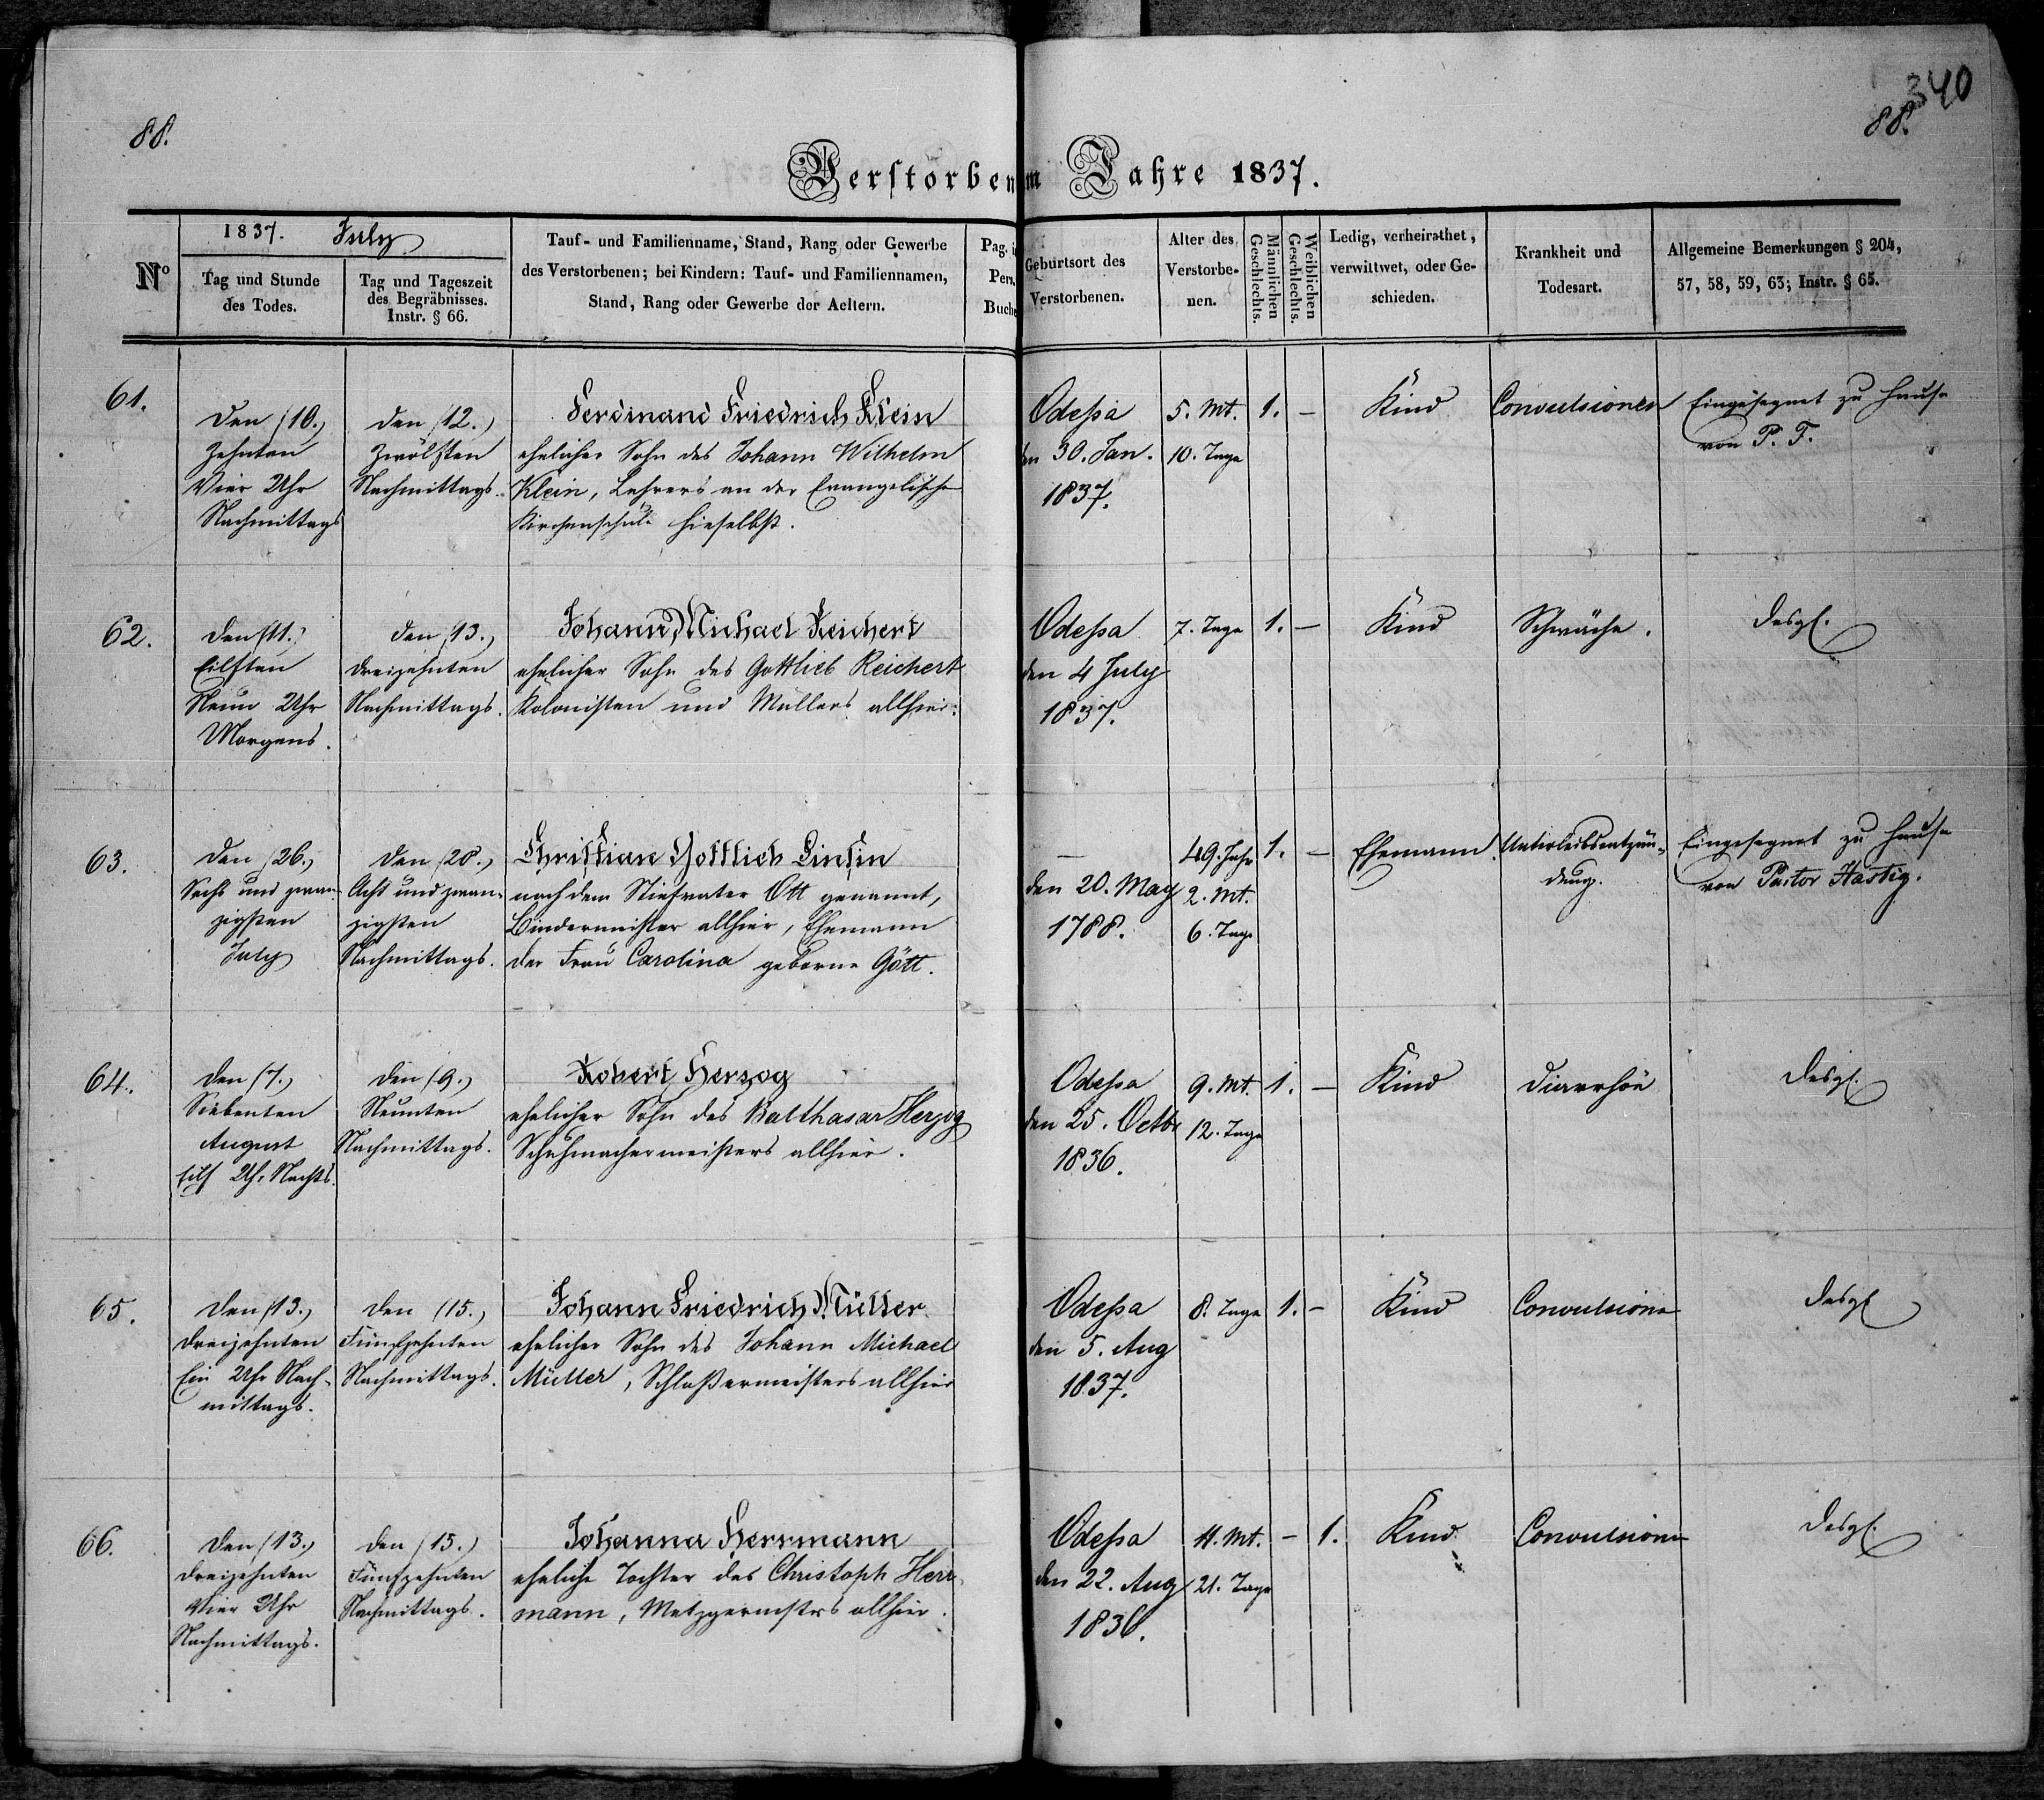 340
88.
88.
Verstorben im Jahre 1837.
Nº
1837. July
Tag und Stunde
des Todes.
Tag und Tageszeit
des Begräbnisses.
Instr. § 66.
Tauf- und Familienname, Stand, Rang oder Gewerbe
des Verstorbenen; bei Kindern: Tauf- und Familiennamen,
Stand, Rang oder Gewerbe der Aeltern.
Pag. i
Pers.
Buche
Geburtsort des
Verstorbenen.
Alter des
Verstorbe-
nen.
Männlichen
Geschlechts.
Weiblichen
Geschlechts.
Ledig, verheirathet,
verwittwet, oder Ge-
schieden.
Krankheit und
Todesart.
Allgemeine Bemerkungen § 204,
57, 58, 59, 63; Instr. § 65.
61.
den (10.)
Zehnten
Vier Uhr
Nachmittags
den (12.)
Zwölften
Nachmittags.
Ferdinand Friedrich Klein
ehelicher Sohn des Johann Wilhelm
Klein, Lehrers an der Evangelischen
Kirchenschule hieselbst.
Odessa
den 30. Jan.
1837.
5. Mt.
10. Tage
1.
–
Kind
Convulsionen
Eingesegnet zu Hause
von P. F.
62.
den (11.)
Eilften
Neun Uhr
Morgens.
den (13.)
dreizehnten
Nachmittags.
Johann Michael Reichert
ehelicher Sohn des Gottlieb Reichert
Kolonisten und Müllers allhier.
Odessa
den 4 July
1837.
7. Tage
1.
–
Kind
Schwäche.
desgl.
63.
den (26.)
Sechs und zwan-
zigsten
July
den (28.)
Acht und zwan-
zigsten
Nachmittags.
Christian Gottlieb
nach dem Stiefvater Ott genannt,
Bindermeister allhier, Ehemann
der Frau Carolina geborne Gött.
–
den 20. May
1788.
49. Jahr
2. Mt.
6. Tage
1.
–
Ehemann.
Unterleibsentzün-
dung.
Eingesegnet zu Hause
von Pastor Hastig.
64.
den (7.)
Siebenten
August
Eilf Uh. Nachts.
den (9.)
Neunten
Nachmittags.
Robert Herzog
ehelicher Sohn des Balthasar Herzog
Schuhmachermeisters allhier.
Odessa
den 25. Octbr
1836.
9. Mt.
12. Tage
1.
–
Kind
Diarrhöe
desgl.
65.
den (13.)
dreizehnten
Ein Uhr Nach-
mittags.
den (15.)
Fünfzehnten
Nachmittags.
Johann Friedrich Müller
ehelicher Sohn des Johann Michael
Müller, Schloßermeisters allhier
Odessa
den 5. Aug
1837.
8. Tage
1.
–
Kind
Convulsione
desgl
66.
den (13.)
dreizehnten
Vier Uhr
Nachmittags.
den (15.)
Fünfzehnten
Nachmittags.
Johanna Herrmann
eheliche Tochter des Christoph Herr-
mann, Metzgermstrs allhier.
Odessa
den 22. Aug
1836.
11. Mt.
21. Tage
–
1.
Kind
Convulsione
desgl.